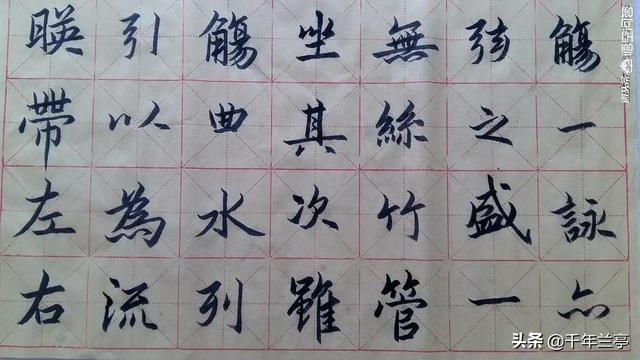 暎帶左右
引以為流
觴曲水列
坐其次雖
無絲竹管
弦之盛一
觴一詠亦
悟空问答
头条 @千年兰亭